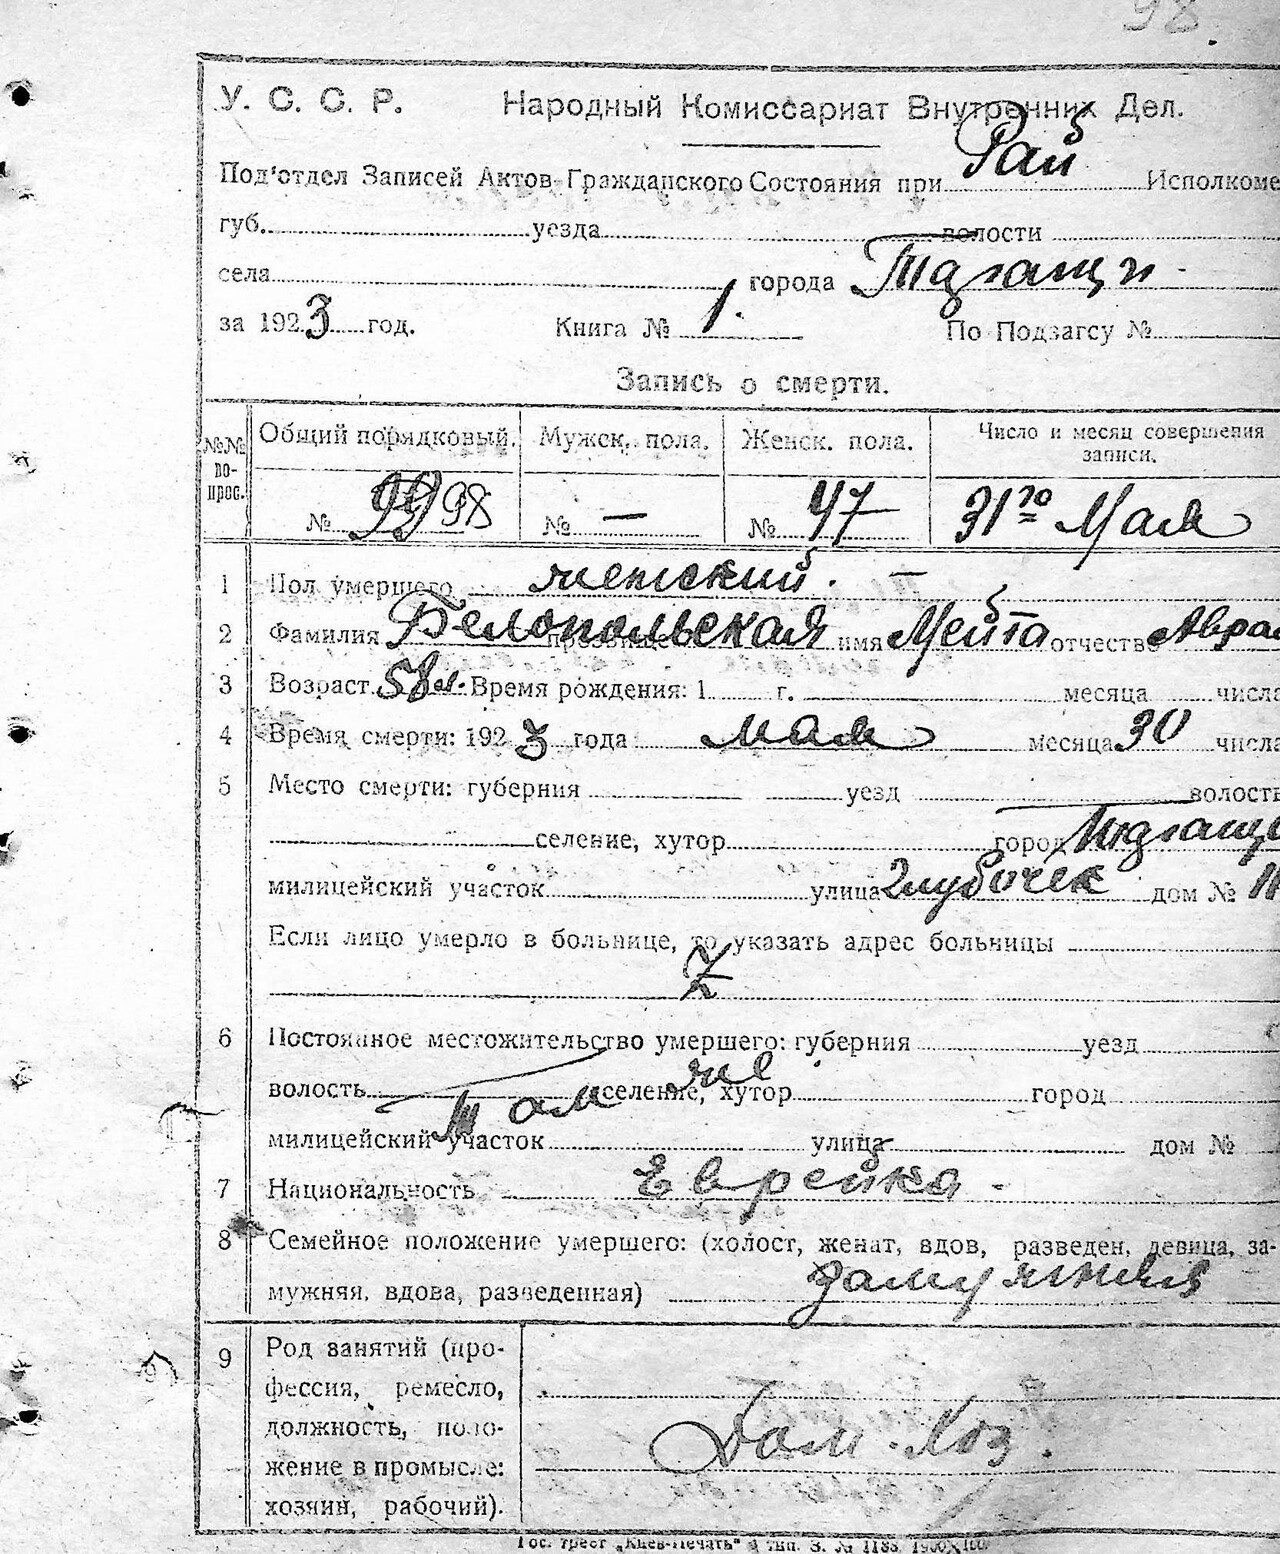 98.
У. С. С. Р. Народный Комиссариат Внутренних Дел.
Под'отдел Записей Актов Гражданского Состояния при Рай Исполкоме
губ. уезда волости
села города Таращи
за 1923 год. Книга № 1. По Подзагсу №
Запись о смерти.
№№ во-прос. Общий порядковый. Мужск. пола. Женск. пола. Число и месяц совершения записи.
№ 98 № — № 47 31го Мая
1 Пол умершего женский. —
2 Фамилия Белопольская прозвище имя Мейта отчество Аврам
3 Возраст 58 л. Время рождения: 1 г. месяца числа
4 Время смерти: 1923 года мая месяца 30 числа
5 Место смерти: губерния уезд волость
селение, хутор город Тараща
милицейский участок улица Глубочек дом №
Если лицо умерло в больнице, то указать адрес больницы
Z
6 Постоянное местожительство умершего: губерния уезд
волость там же селение, хутор город
милицейский участок улица дом №
7 Национальность Еврейка -
8 Семейное положение умершего: (холост, женат, вдов, разведен, девица, за-
мужняя, вдова, разведенная) замужняя
9 Род занятий (про-
фессия, ремесло,
должность, поло-
жение в промысле:
хозяин, рабочий).
Дом. Хоз.
Гос. трест „Киев-Печать" 4 тип. З. № 1188